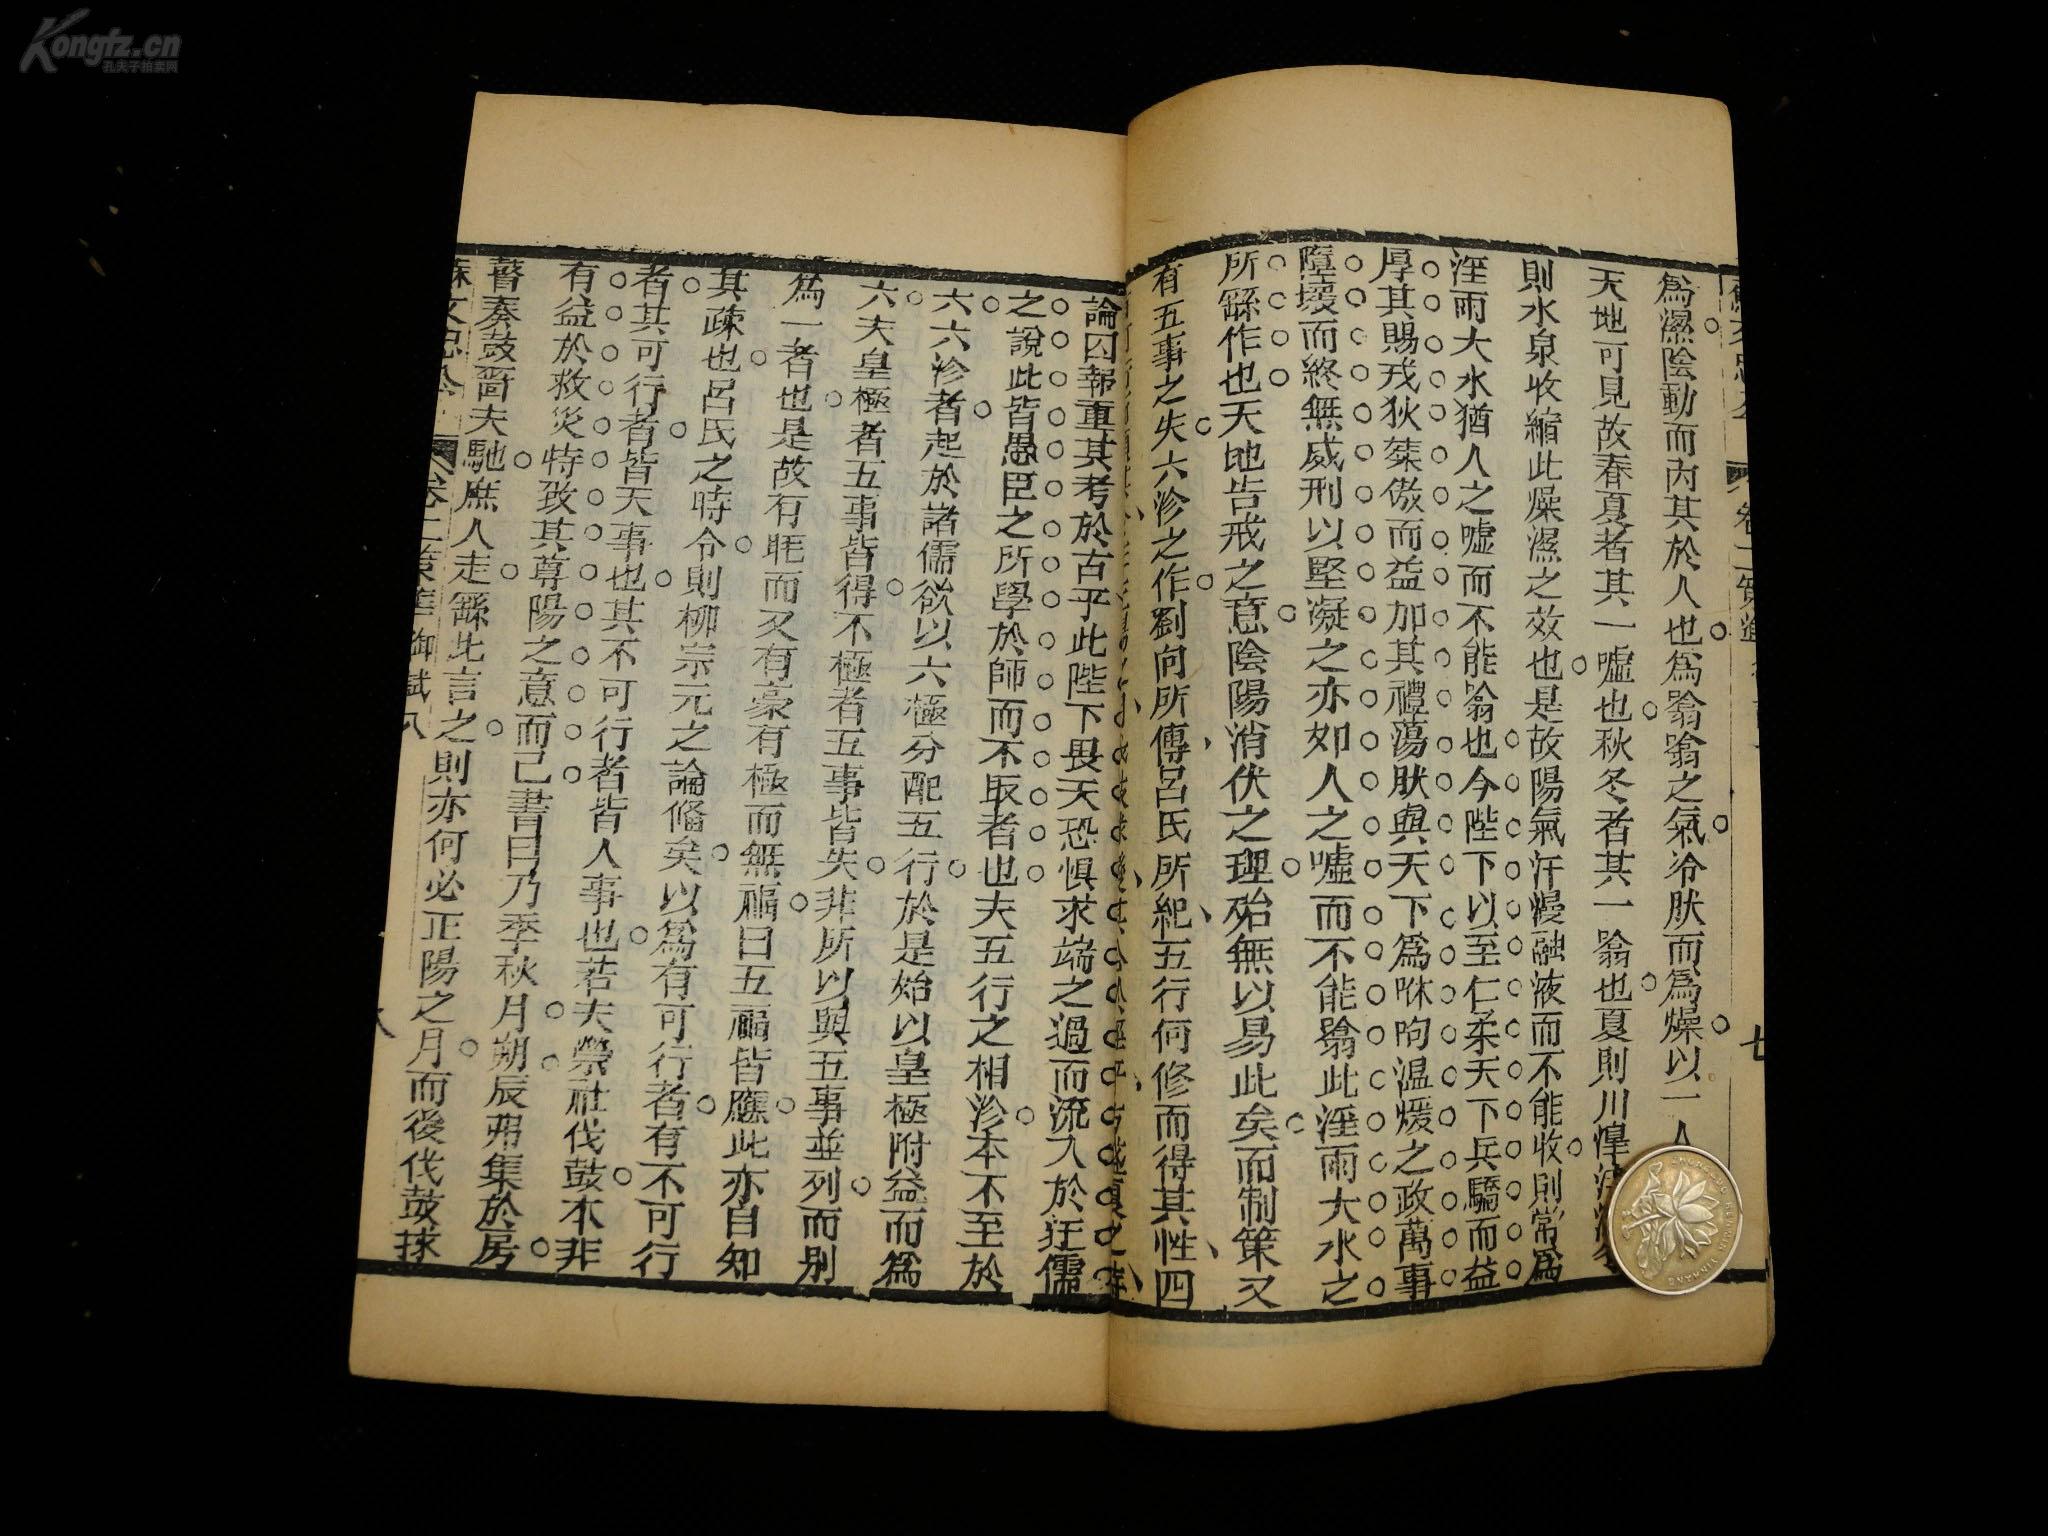 Kongfz.cn
孔夫子拍卖网
七
為濕陰動而內其於人也為翕翕之氣冷肰而為燥以一人
天地可見故春夏者其一噓也秋冬者其一翕也夏則川
則水泉收縮此燥濕之效也是故陽氣汗漫融液而不能收則常為
淫雨大水猶人之噓而不能翕也今陛下以至仁柔天下兵驕而益
厚其賜戎狄桀傲而益加其禮蕩肰與天下為咻呴溫煖之政萬事
墮壞而終無威刑以堅凝之亦如人之噓而不能翕此淫雨大水之
所繇作也天地告戒之意陰陽消伏之理殆無以易此矣而制策又
有五事之失六沴之作劉向所傳呂氏所紀五行何修而得其性四
論囚報重其考於古乎此陛下畏天恐懼求端之過而流入於狂儒
之說此皆愚臣之所學於師而不取者也夫五行之相沴本不至於
六六沴者起於諸儒欲以六極分配五行於是始以皇極附益而為
六夫皇極者五事皆得不極者五事皆失非所以與五事並列而別
為一者也是故有眊而又有蒙有極而無福曰五福皆應此亦自知
其疎也呂氏之時令則柳宗元之論備矣以為有可行者有不可行
者其可行者皆天事也其不可行者皆人事也若夫禜社伐鼓本非
有益於救災特致其尊陽之意而已書曰乃季秋月朔辰弗集於房
瞽奏鼓嗇夫馳庶人走繇此言之則亦何必正陽之月而後伐鼓捄
蘇文忠公 卷二策進御試八
八